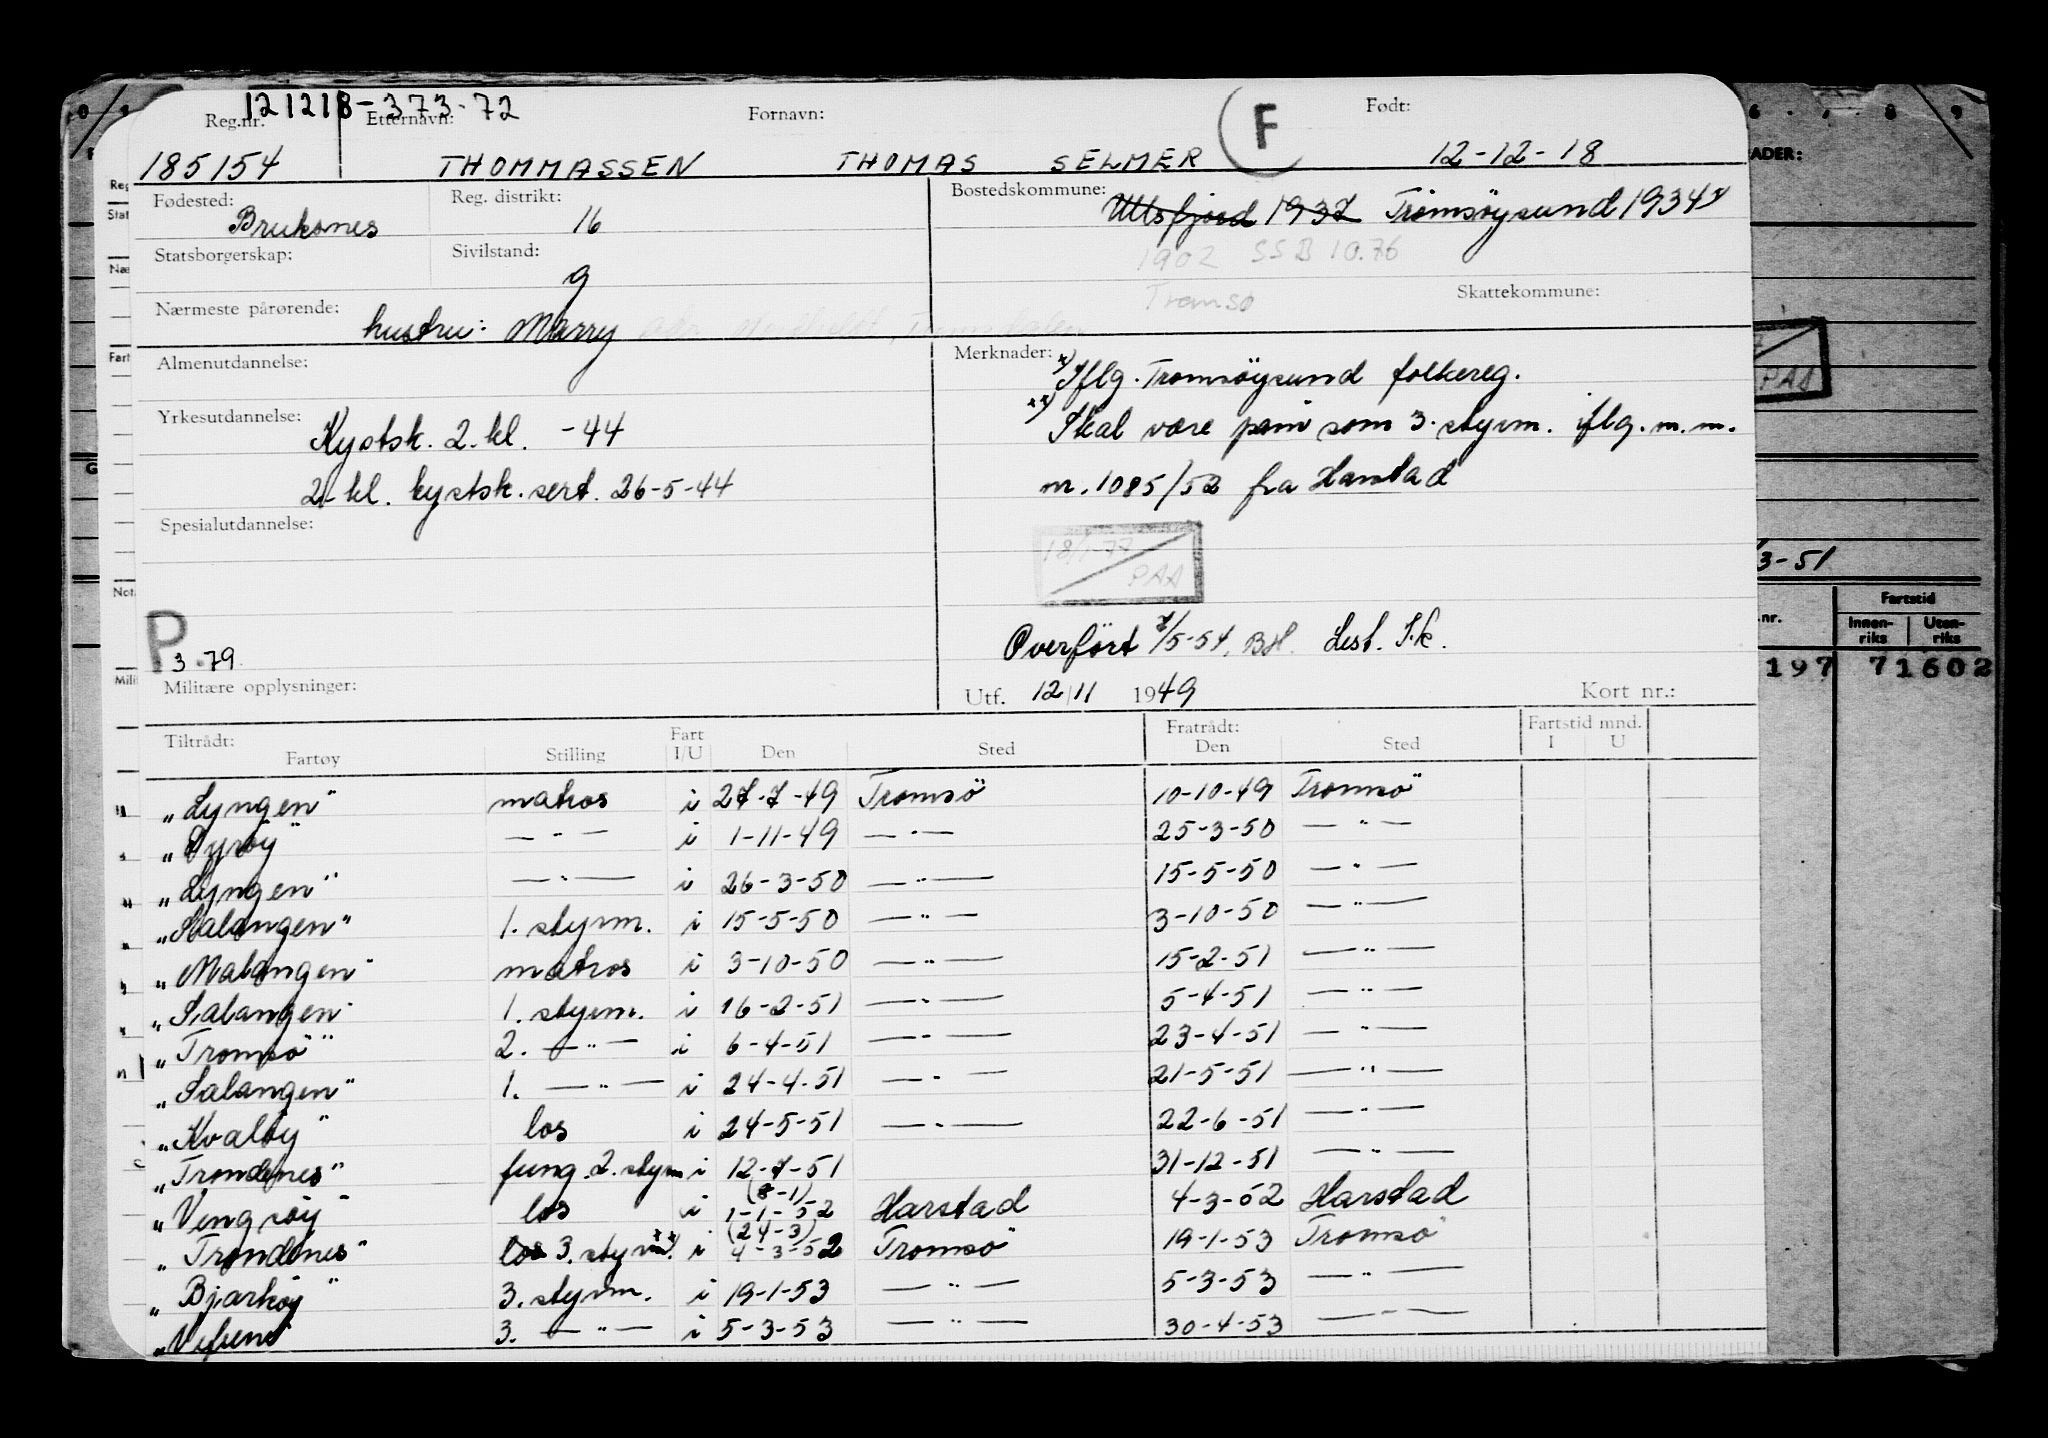 121218-373-72
Reg.nr. Etternavn: Fornavn: F Født:
185154 THOMMASSEN THOMAS SELMER 12-12-18
Fødested: Reg. distrikt: Bostedskommune:
Bruksnes 16 Ullsfjord 1937 Tromsöysund 1934
Statsborgerskap: Sivilstand: 1902 SSB 10.76
g Tromsö
Nærmeste pårørende: Skattekommune:
hustru: Marry
Almenutdannelse: Merknader:
x) Iflg. Tromsöysund folkereg.
Yrkesutdannelse:
Kystsk. 2. kl. -44
xx) Skal være påm som 3. styrm. iflg. m.m.
2. kl. kystsk. sert. 26-5-44 nr. 1085/52 fra Harstad
Spesialutdannelse:
18/1-77 PAA
P 3.79
Overført 7/5-54. BH. Lest. S.k.
Militære opplysninger: Utf. 12/11 1949 Kort nr.:
Tiltrådt: Fratrådt: Fartstid mnd.
Fartøy Stilling Fart I/U Den Sted Den Sted I U
"Lyngen" matros i 27-7-49 Tromsö 10-10-49 Tromsö
"Dyröy" — " — i 1-11-49 — " — 25-3-50 — " —
"Lyngen" — " — i 26-3-50 — " — 15-5-50 — " —
"Salangen" 1. styrm. i 15-5-50 — " — 3-10-50 — " —
"Malangen" matros i 3-10-50 — " — 15-2-51 — " —
"Salangen" 1. styrm. i 16-2-51 — " — 5-4-51 — " —
"Tromsö" 2. — " — i 6-4-51 — " — 23-4-51 — " —
"Salangen" 1. — " — i 24-4-51 — " — 21-5-51 — " —
"Kvalöy" los i 24-5-51 — " — 22-6-51 — " —
"Trondenes" fung. 2. styrm i 12-7-51 31-12-51 — " —
"Vengsöy" los i (8-1) 1-1-52 Harstad 4-3-52 Harstad
"Trondenes" los 3. styrm. xx) i (24-3) 4-3-52 Tromsö 19-1-53 Tromsö
"Bjarköy" 3. styrm. i 19-1-53 — " — 5-3-53 — " —
3. — " — i 5-3-53 — " — 30-4-53 — " —
8 9
ADER:
PAA
3-51
.nr. Fartstid
Innen-riks Uten-riks
197 71602